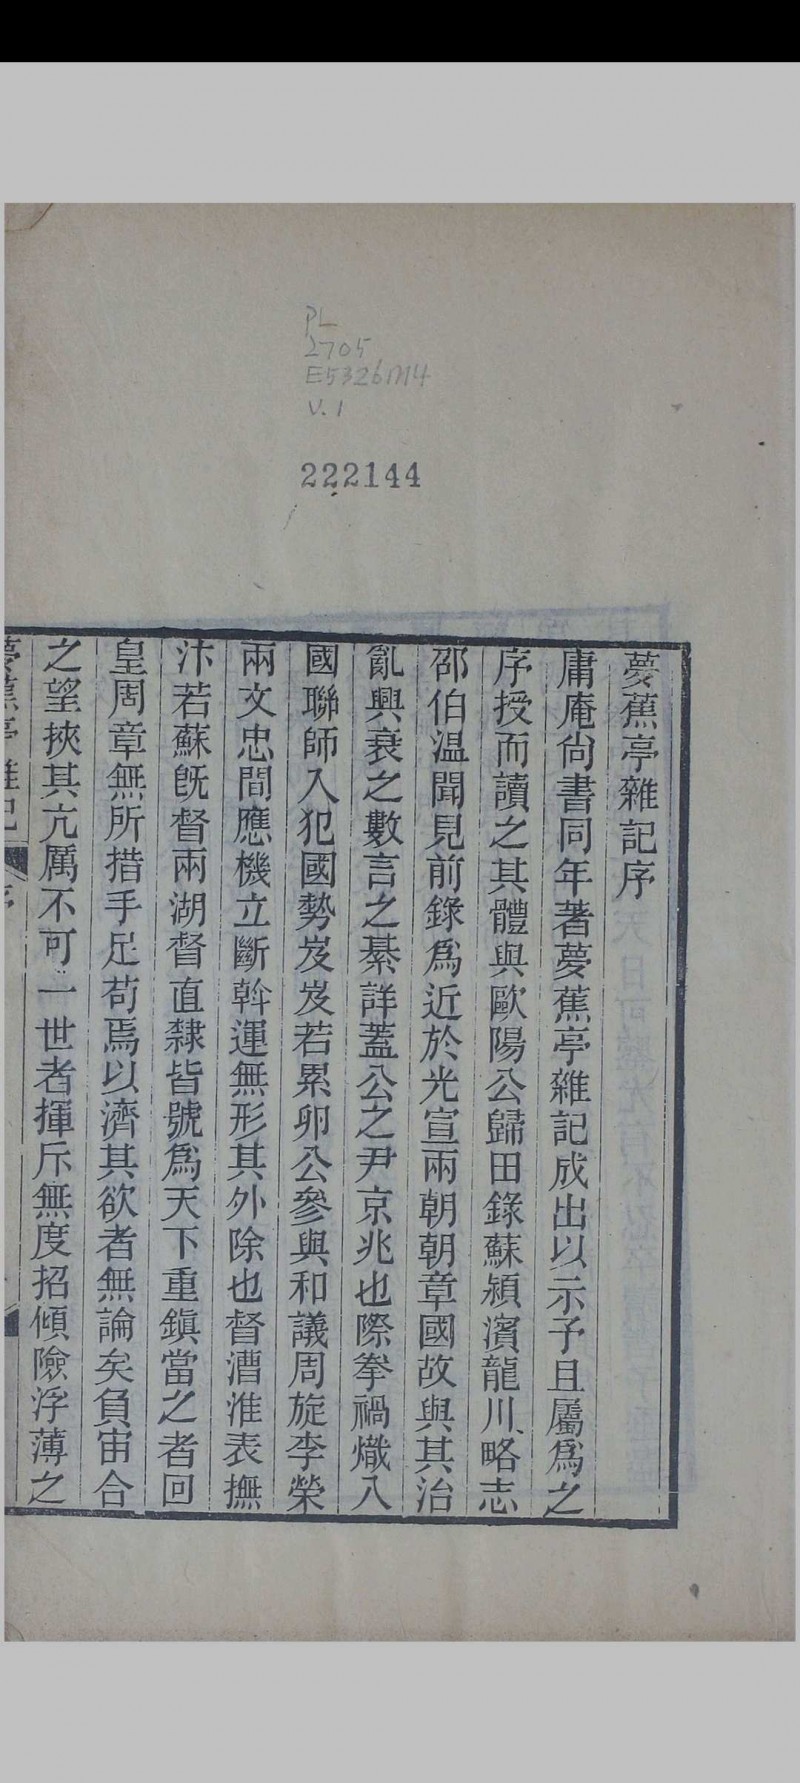 PL
2705
E5326M4
V.1
222144
夢蕉亭雜記序
庸庵尙書同年著夢蕉亭雜記成出以示予且屬爲之
序授而讀之其體與歐陽公歸田錄蘇潁濱龍川略志
邵伯溫聞見前錄爲近於光宣兩朝朝章國故與其治
亂興衰之數言之綦詳蓋公之尹京兆也際拳禍熾八
國聯師入犯國勢岌岌若累卵公參與和議周旋李榮
兩文忠間應機立斷斡運無形其外除也督漕淮表撫
汴若蘇旣督兩湖督直隸皆號爲天下重鎭當之者回
皇周章無所措手足苟焉以濟其欲者無論矣負宙合
之望挾其亢厲不可一世者揮斥無度招傾險浮薄之
夢蕉亭雜記
序